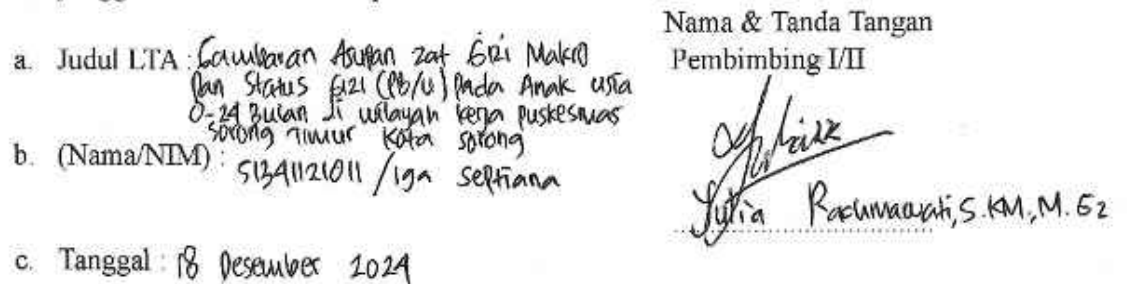 Nama & Tanda Tangan
Pembimbing I/II
a. Judul LTA : Gambaran Asupan zat Gizi Makro
Dan Status Gizi (PB/U) Pada Anak usia
0-24 Bulan di wilayah kerja puskesmas
sorong Timur Kota sorong
b. (Nama/NIM) : 51341121011 / iga septiana
Yulia Rachmawati, S.KM, M.Gz
c. Tanggal : 18 Desember 2024